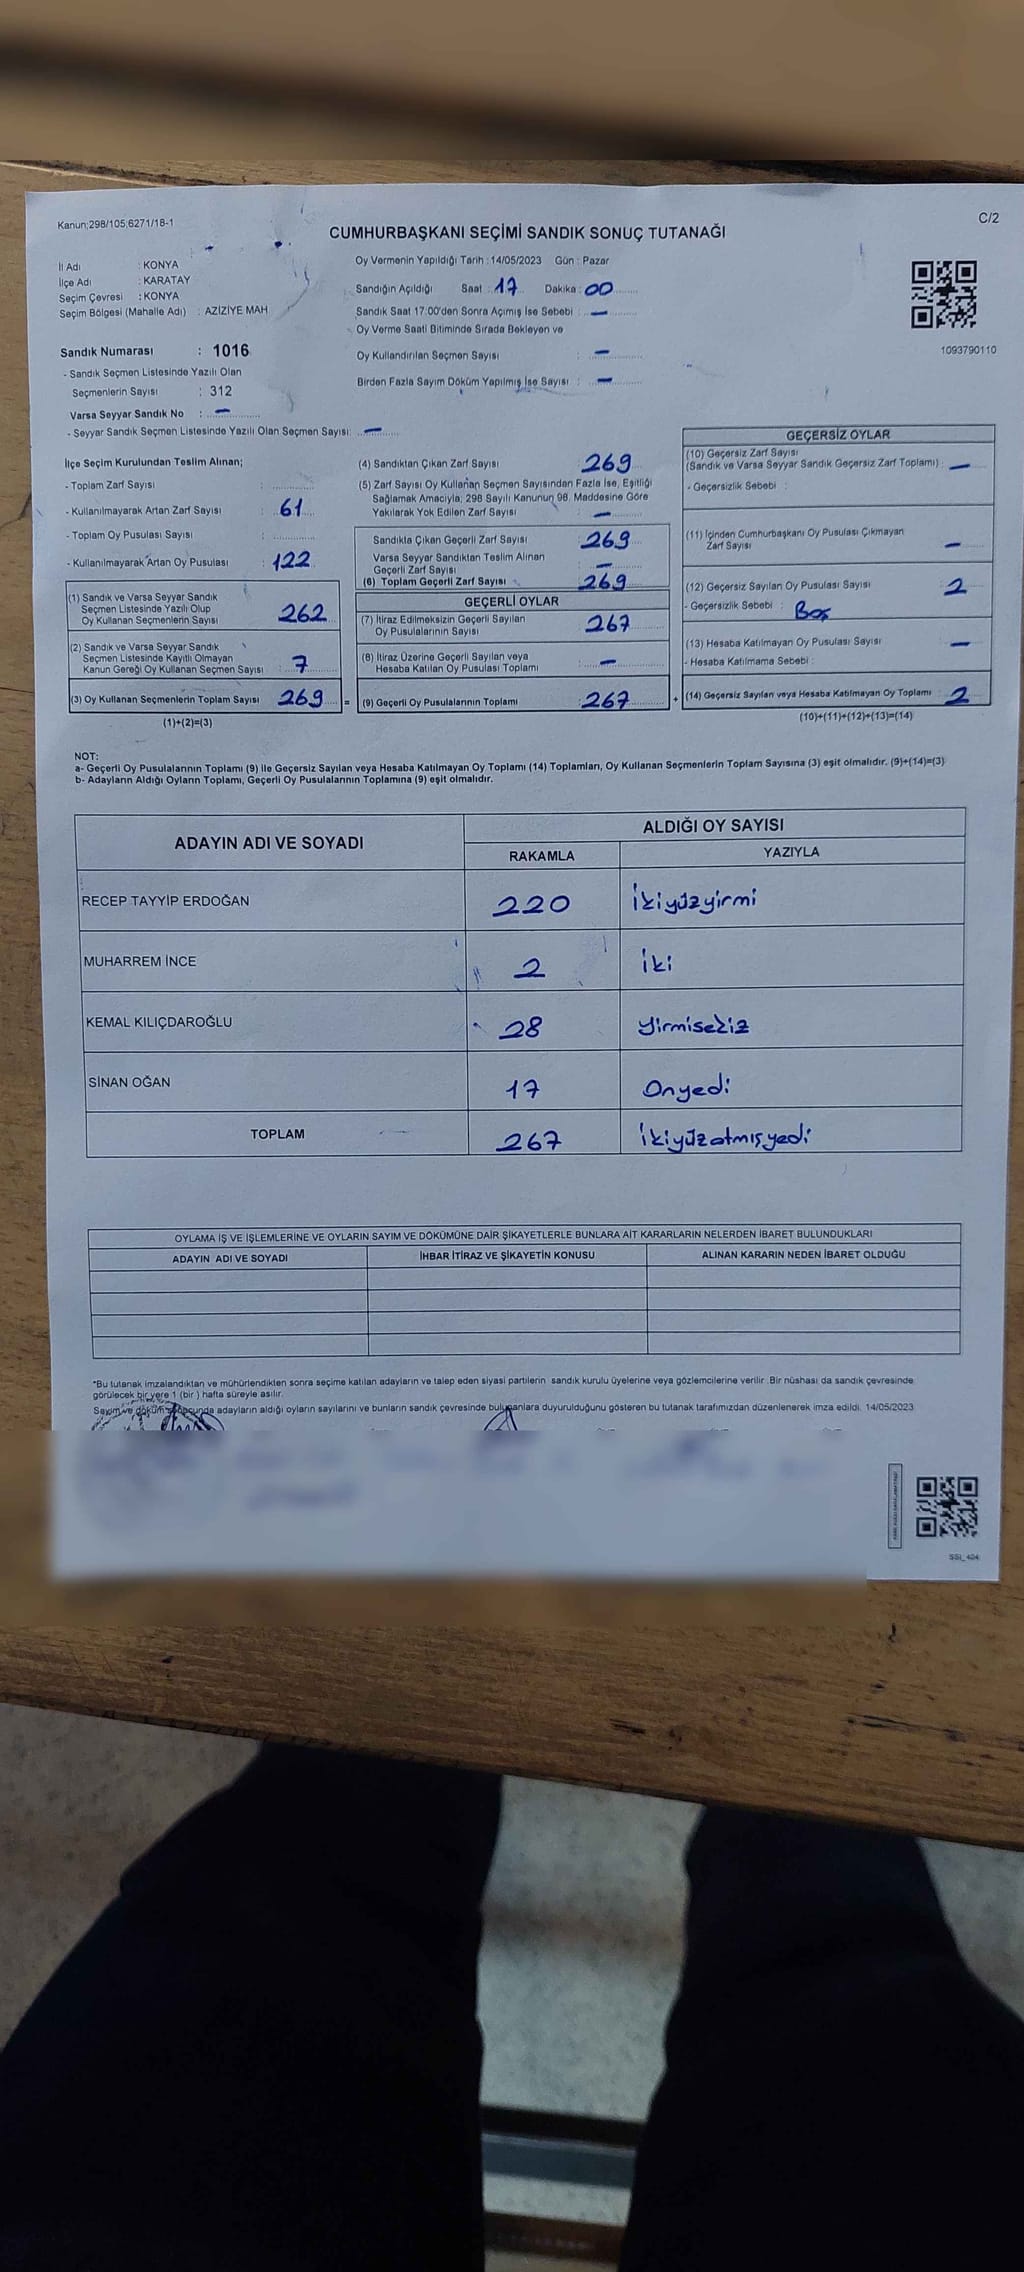 Kanun;298/105;6271/18-1
C/2
CUMHURBAŞKANI SEÇİMİ SANDIK SONUÇ TUTANAĞI
İl Adı : KONYA
İlçe Adı : KARATAY
Seçim Çevresi : KONYA
Seçim Bölgesi (Mahalle Adı) : AZİZİYE MAH
Sandık Numarası : 1016
- Sandık Seçmen Listesinde Yazılı Olan
Seçmenlerin Sayısı : 312
Varsa Seyyar Sandık No : —
- Seyyar Sandık Seçmen Listesinde Yazılı Olan Seçmen Sayısı: —
Oy Vermenin Yapıldığı Tarih : 14/05/2023 Gün : Pazar
Sandığın Açıldığı Saat : 17 Dakika : 00
Sandık Saat 17:00'den Sonra Açımış İse Sebebi : —
Oy Verme Saati Bitiminde Sırada Bekleyen ve
Oy Kullandırılan Seçmen Sayısı : —
Birden Fazla Sayım Döküm Yapılmış İse Sayısı : —
1093790110
İlçe Seçim Kurulundan Teslim Alınan;
- Toplam Zarf Sayısı :
- Kullanılmayarak Artan Zarf Sayısı : 61
- Toplam Oy Pusulası Sayısı :
- Kullanılmayarak Artan Oy Pusulası : 122
(1) Sandık ve Varsa Seyyar Sandık
Seçmen Listesinde Yazılı Olup
Oy Kullanan Seçmenlerin Sayısı : 262
(2) Sandık ve Varsa Seyyar Sandık
Seçmen Listesinde Kayıtlı Olmayan
Kanun Gereği Oy Kullanan Seçmen Sayısı : 7
(3) Oy Kullanan Seçmenlerin Toplam Sayısı : 269 =
(1)+(2)=(3)
(4) Sandıktan Çıkan Zarf Sayısı : 269
(5) Zarf Sayısı Oy Kullanan Seçmen Sayısından Fazla İse, Eşitliği
Sağlamak Amacıyla; 298 Sayılı Kanunun 98. Maddesine Göre
Yakılarak Yok Edilen Zarf Sayısı : —
Sandıkla Çıkan Geçerli Zarf Sayısı : 269
Varsa Seyyar Sandıktan Teslim Alınan
Geçerli Zarf Sayısı : —
(6) Toplam Geçerli Zarf Sayısı : 269
GEÇERLİ OYLAR
(7) İtiraz Edilmeksizin Geçerli Sayılan
Oy Pusulalarının Sayısı : 267
(8) İtiraz Üzerine Geçerli Sayılan veya
Hesaba Katılan Oy Pusulası Toplamı : —
(9) Geçerli Oy Pusulalarının Toplamı : 267 +
GEÇERSİZ OYLAR
(10) Geçersiz Zarf Sayısı
(Sandık ve Varsa Seyyar Sandık Geçersiz Zarf Toplamı) : —
- Geçersizlik Sebebi :
(11) İçinden Cumhurbaşkanı Oy Pusulası Çıkmayan
Zarf Sayısı : —
(12) Geçersiz Sayılan Oy Pusulası Sayısı : 2
- Geçersizlik Sebebi : Boş
(13) Hesaba Katılmayan Oy Pusulası Sayısı : —
- Hesaba Katılmama Sebebi :
(14) Geçersiz Sayılan veya Hesaba Katılmayan Oy Toplamı : 2
(10)+(11)+(12)+(13)=(14)
NOT:
a- Geçerli Oy Pusulalarının Toplamı (9) ile Geçersiz Sayılan veya Hesaba Katılmayan Oy Toplamı (14) Toplamları, Oy Kullanan Seçmenlerin Toplam Sayısına (3) eşit olmalıdır. (9)+(14)=(3)
b- Adayların Aldığı Oyların Toplamı, Geçerli Oy Pusulalarının Toplamına (9) eşit olmalıdır.
ADAYIN ADI VE SOYADI
ALDIĞI OY SAYISI
RAKAMLA YAZIYLA
RECEP TAYYİP ERDOĞAN 220 İkiyüzyirmi
MUHARREM İNCE 2 İki
KEMAL KILIÇDAROĞLU 28 Yirmisekiz
SİNAN OĞAN 17 Onyedi
TOPLAM 267 İkiyüzatmışyedi
OYLAMA İŞ VE İŞLEMLERİNE VE OYLARIN SAYIM VE DÖKÜMÜNE DAİR ŞİKAYETLERLE BUNLARA AİT KARARLARIN NELERDEN İBARET BULUNDUKLARI
ADAYIN ADI VE SOYADI İHBAR İTİRAZ VE ŞİKAYETİN KONUSU ALINAN KARARIN NEDEN İBARET OLDUĞU
*Bu tutanak imzalandıktan ve mühürlendikten sonra seçime katılan adayların ve talep eden siyasi partilerin sandık kurulu üyelerine veya gözlemcilerine verilir. Bir nüshası da sandık çevresinde
görülecek bir yere 1 (bir ) hafta süreyle asılır.
Sayım ve döküm sonucunda adayların aldığı oyların sayılarını ve bunların sandık çevresinde bulunanlara duyurulduğunu gösteren bu tutanak tarafımızdan düzenlenerek imza edildi. 14/05/2023